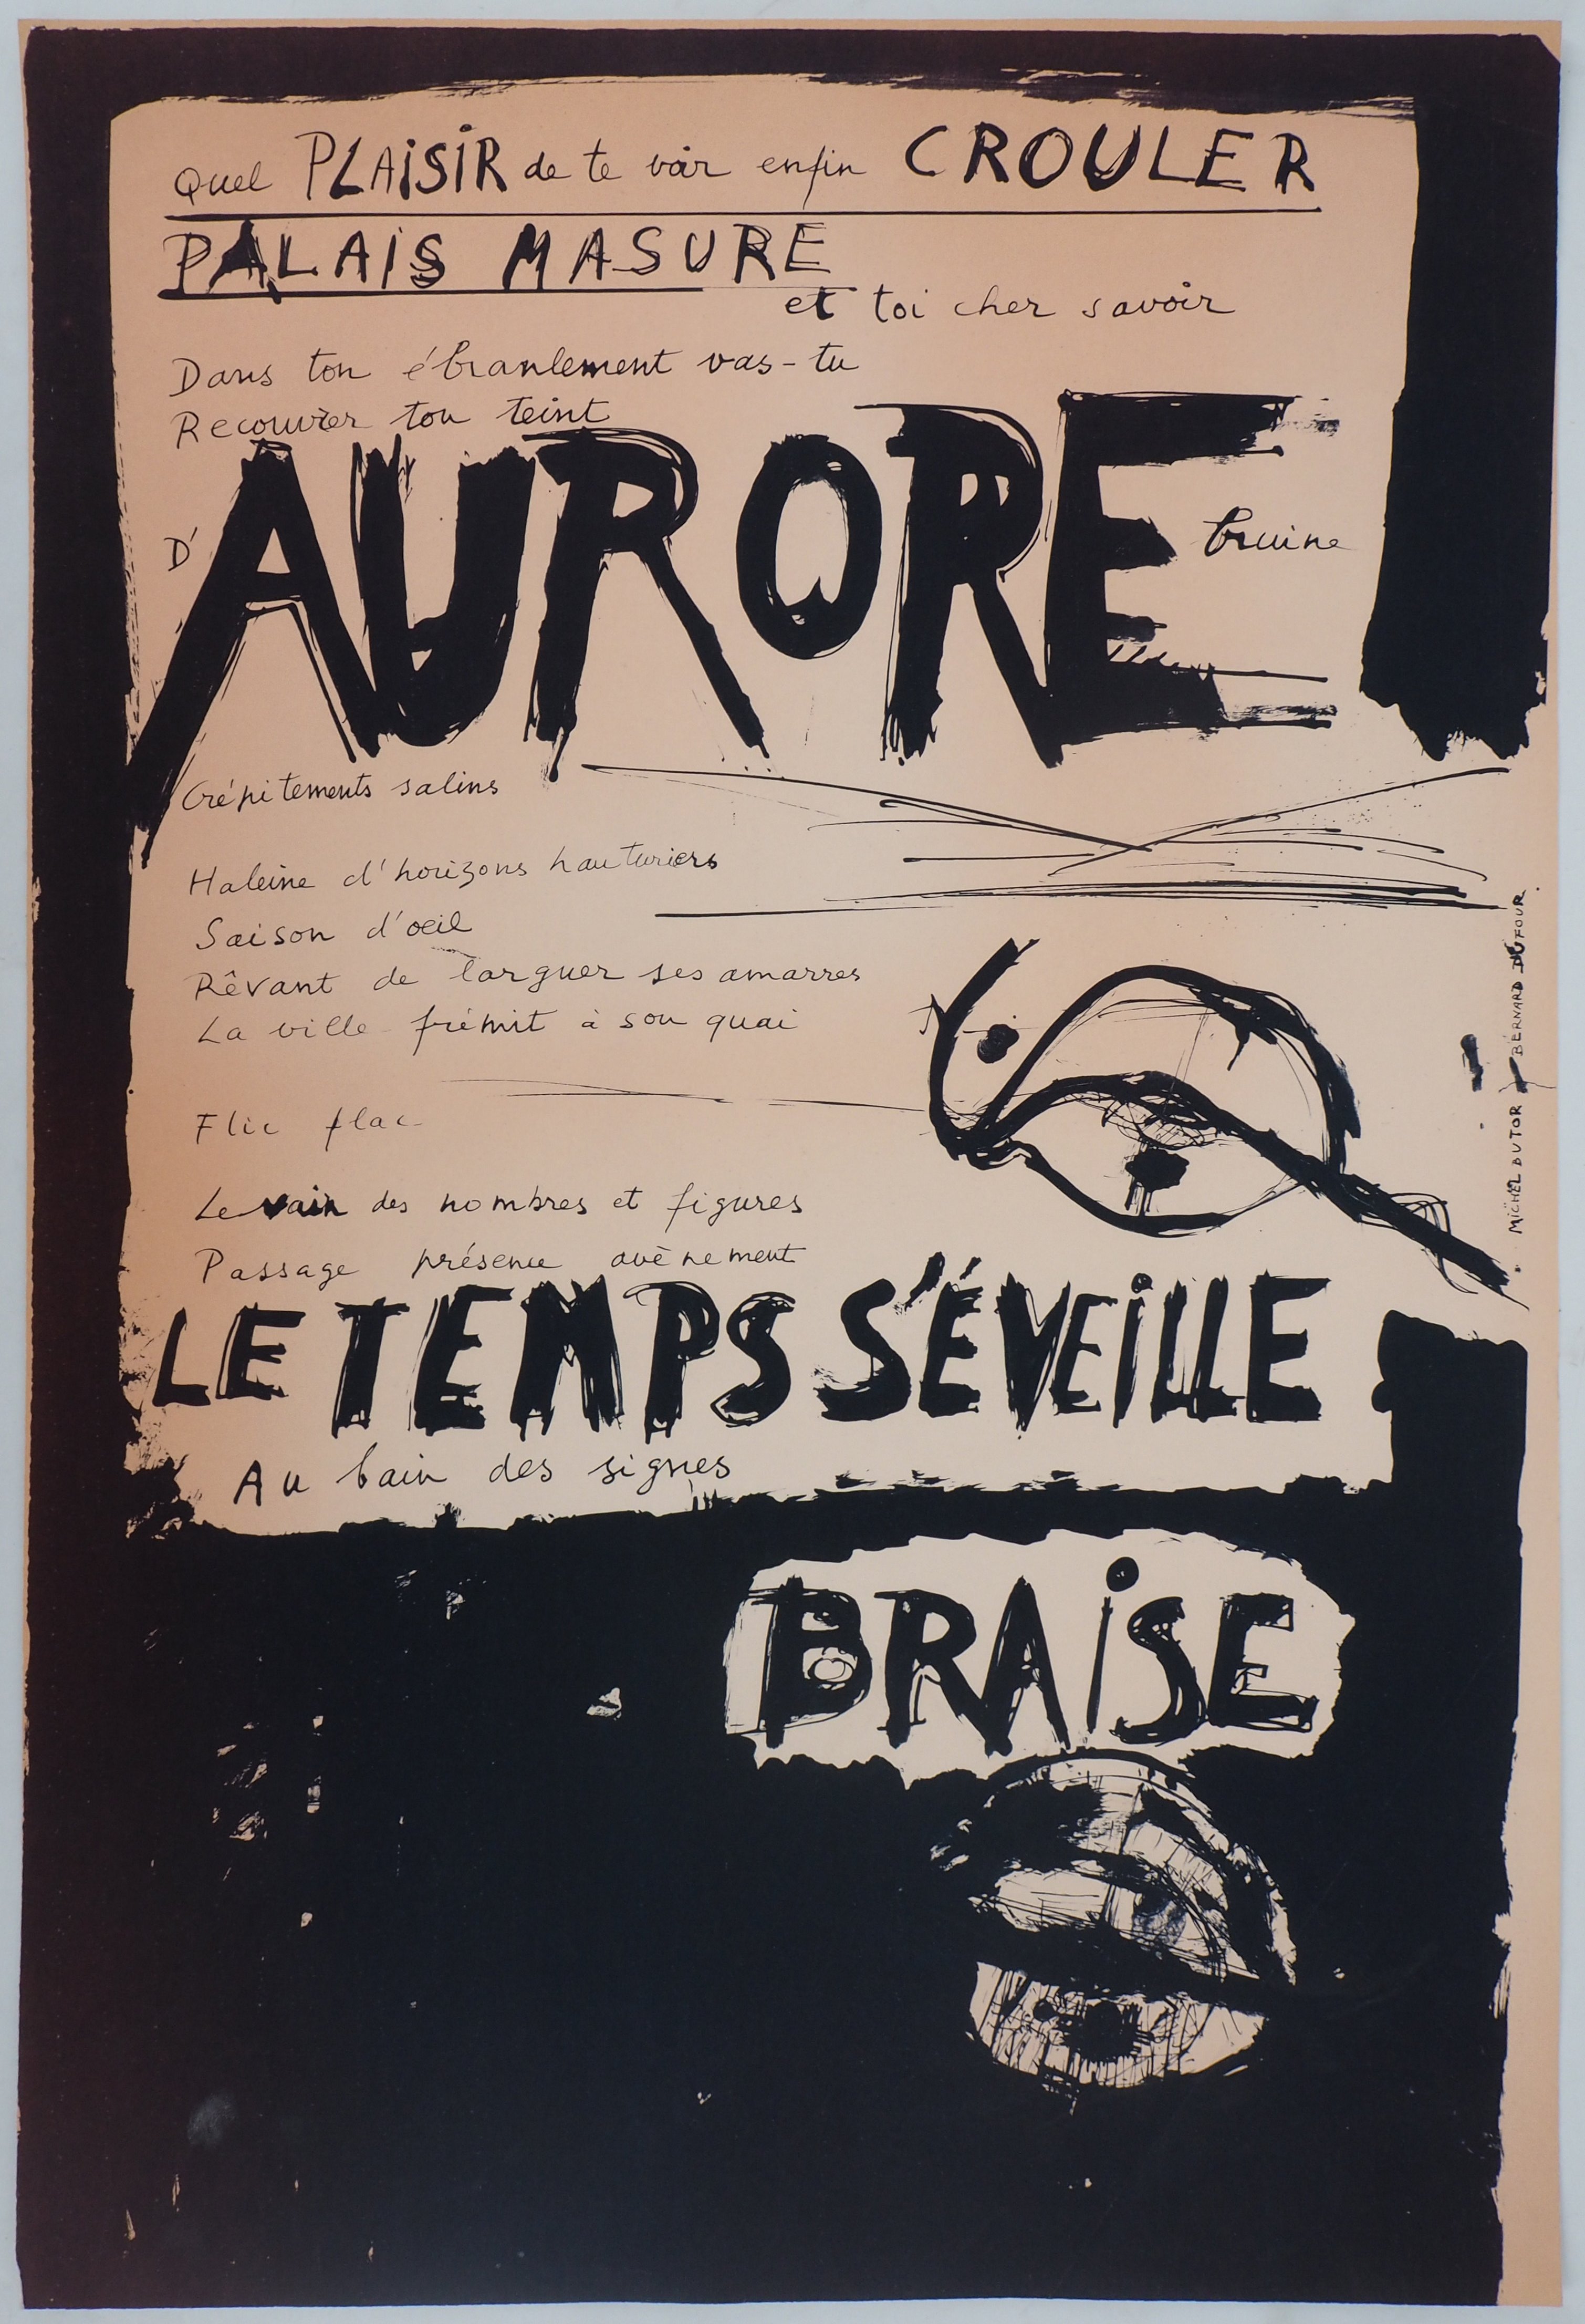 Quel PLAiSiR de te voir enfin CROULER
PALAiS MASURE
et toi cher savoir
Dans ton ébranlement vas-tu
Recouvrer ton teint
D'AURORE bruine
Crépitements salins
Haleine d'horizons hauturiers
Saison d'oeil
Rêvant de larguer ses amarres
La ville frémit à son quai
Flic flac
Levain des nombres et figures
Passage présence avènement
LE TEMPS S'ÉVEiLLE
Au bain des signes
BRAiSE
MICHEL BUTOR BERNARD DUFOUR